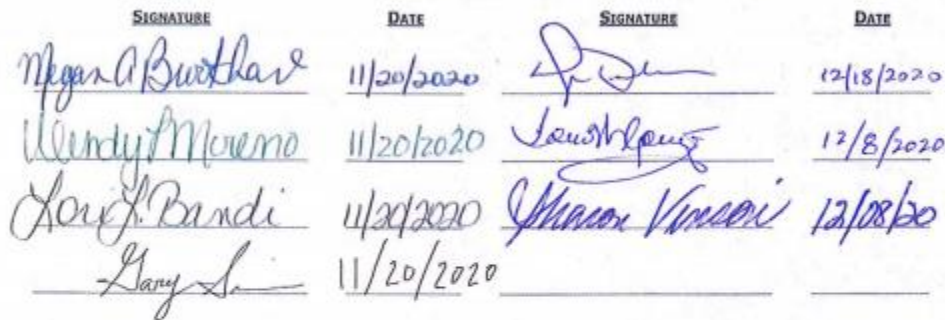 SIGNATURE DATE SIGNATURE DATE
Megan A 11/20/2020 12/18/2020
Wendy Moreno 11/20/2020 12/8/2020
Lori L. Bandi 11/20/2020 Sharon Vinson 12/08/20
Gary 11/20/2020